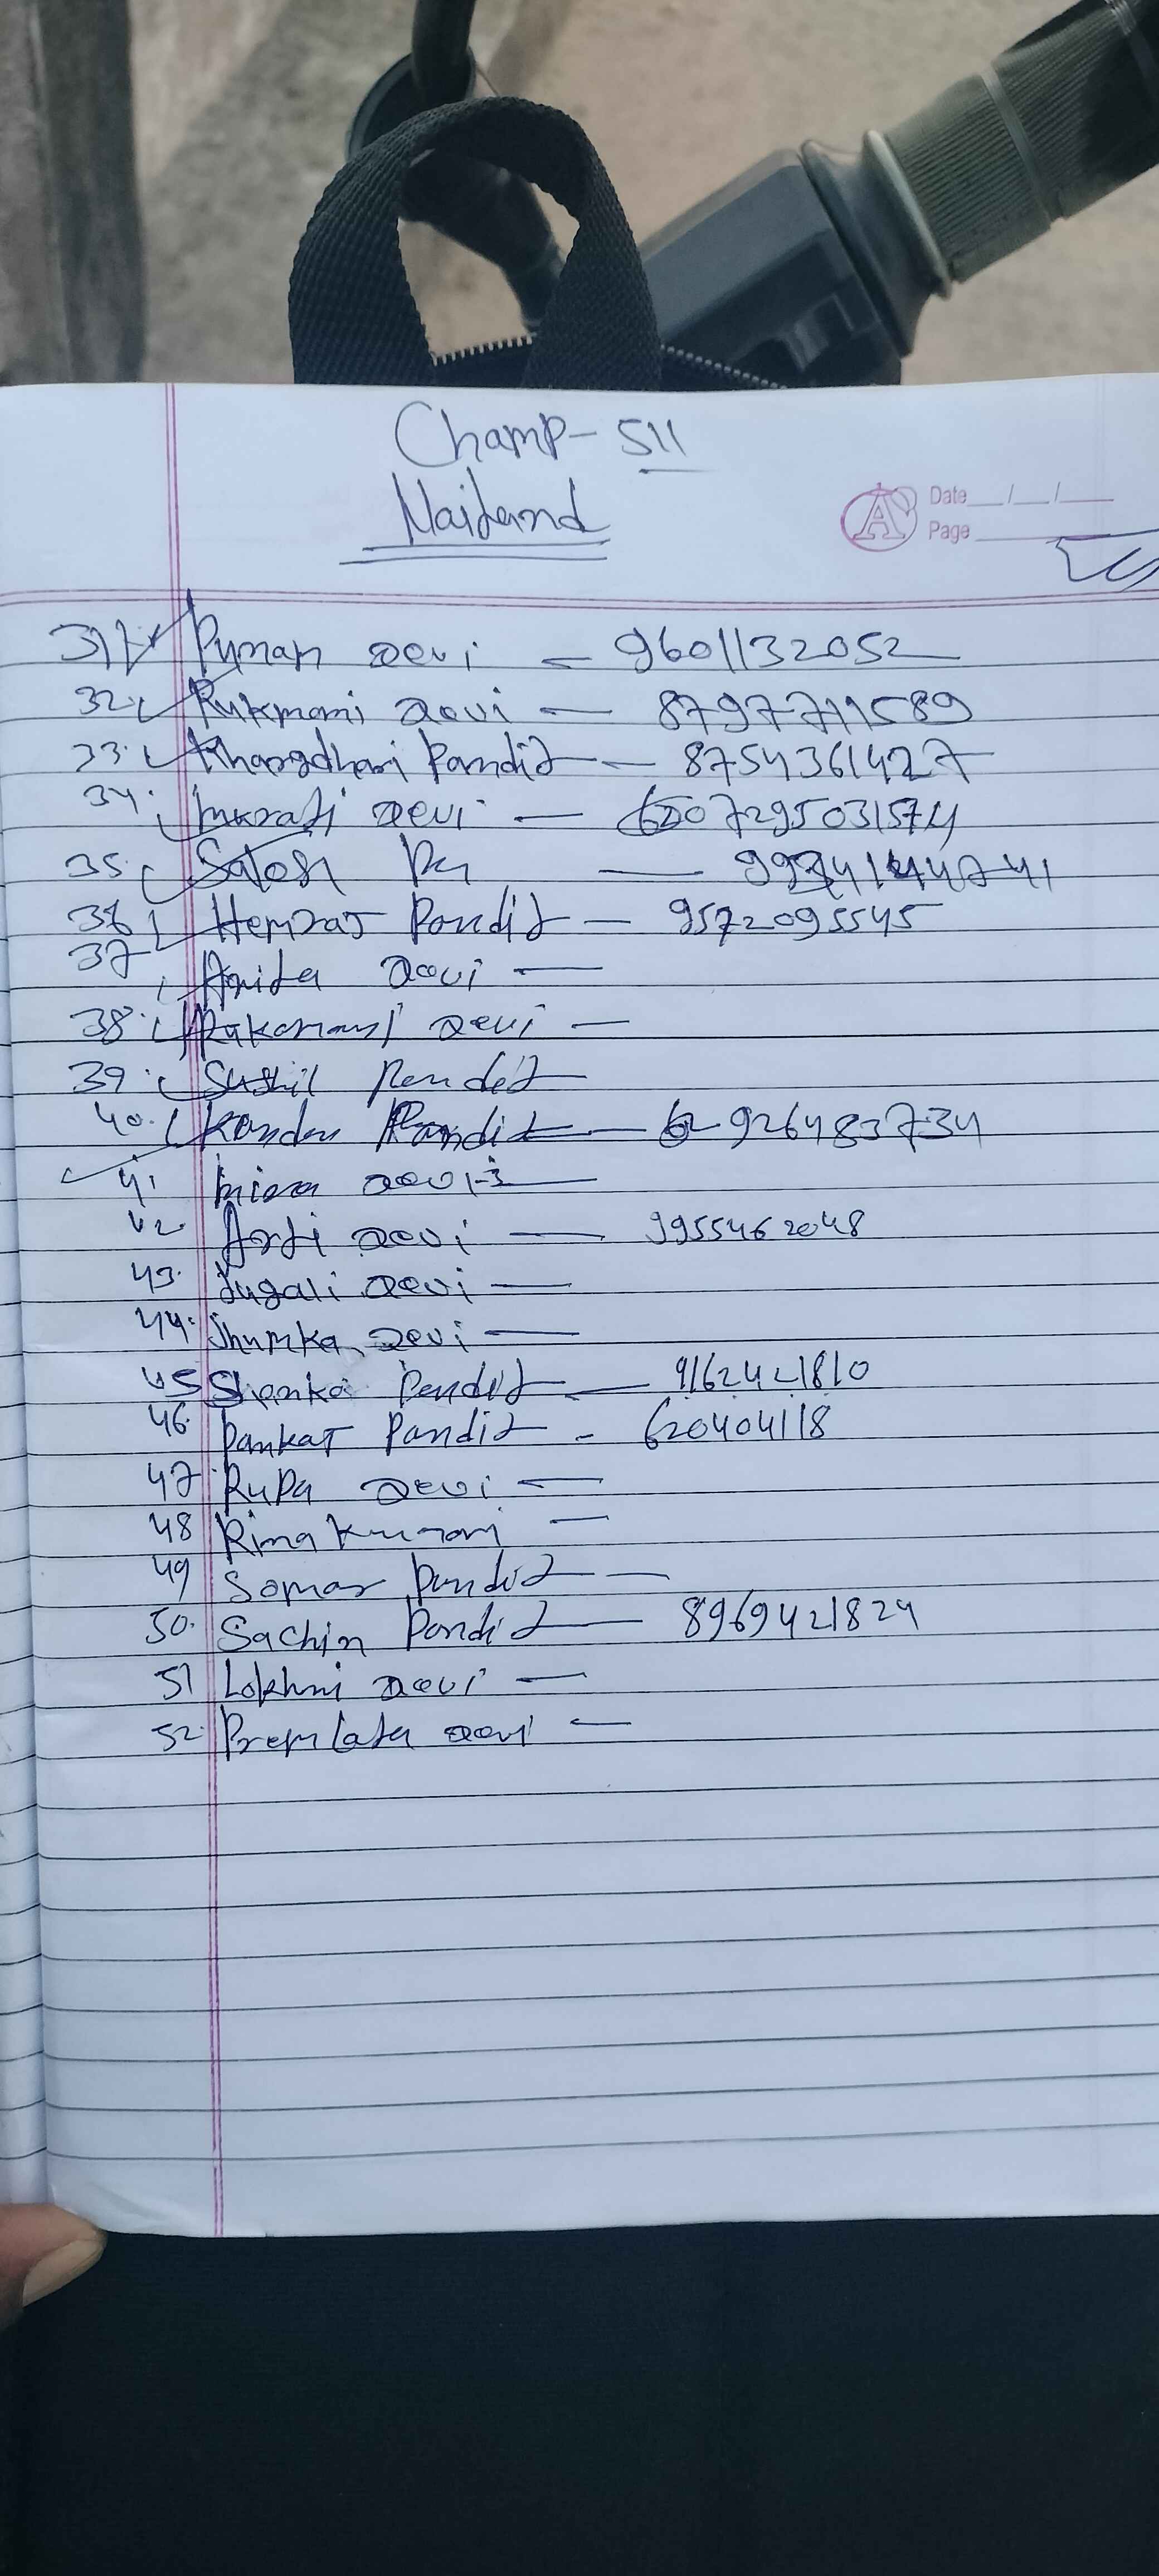 Champ-511
Naitand
Date __/__/__
Page
31. Punam Devi - 9601132052
32. Rukmani Devi - 8797711589
33. Khargdhari Pandit - 8754361427
34. Devi - 7295031574
35. Satosh
36. Hemraj Pandit - 9572095545
37. Anita Devi -
38. Devi -
39. Sushil Pandit
40. Pandit - 9264837734
41 Devi-3
42. Arti Devi - 9955462048
43. Jugali Devi -
44. Jhumka Devi -
45 Shanka Pandit - 9162421810
46. Pankaj Pandit - 620404118
47. Rupa Devi -
48 Rina Kumari -
49 Somar Pandit -
50. Sachin Pandit - 8969421824
51 Lakhmi Devi -
52. Premlata Devi -